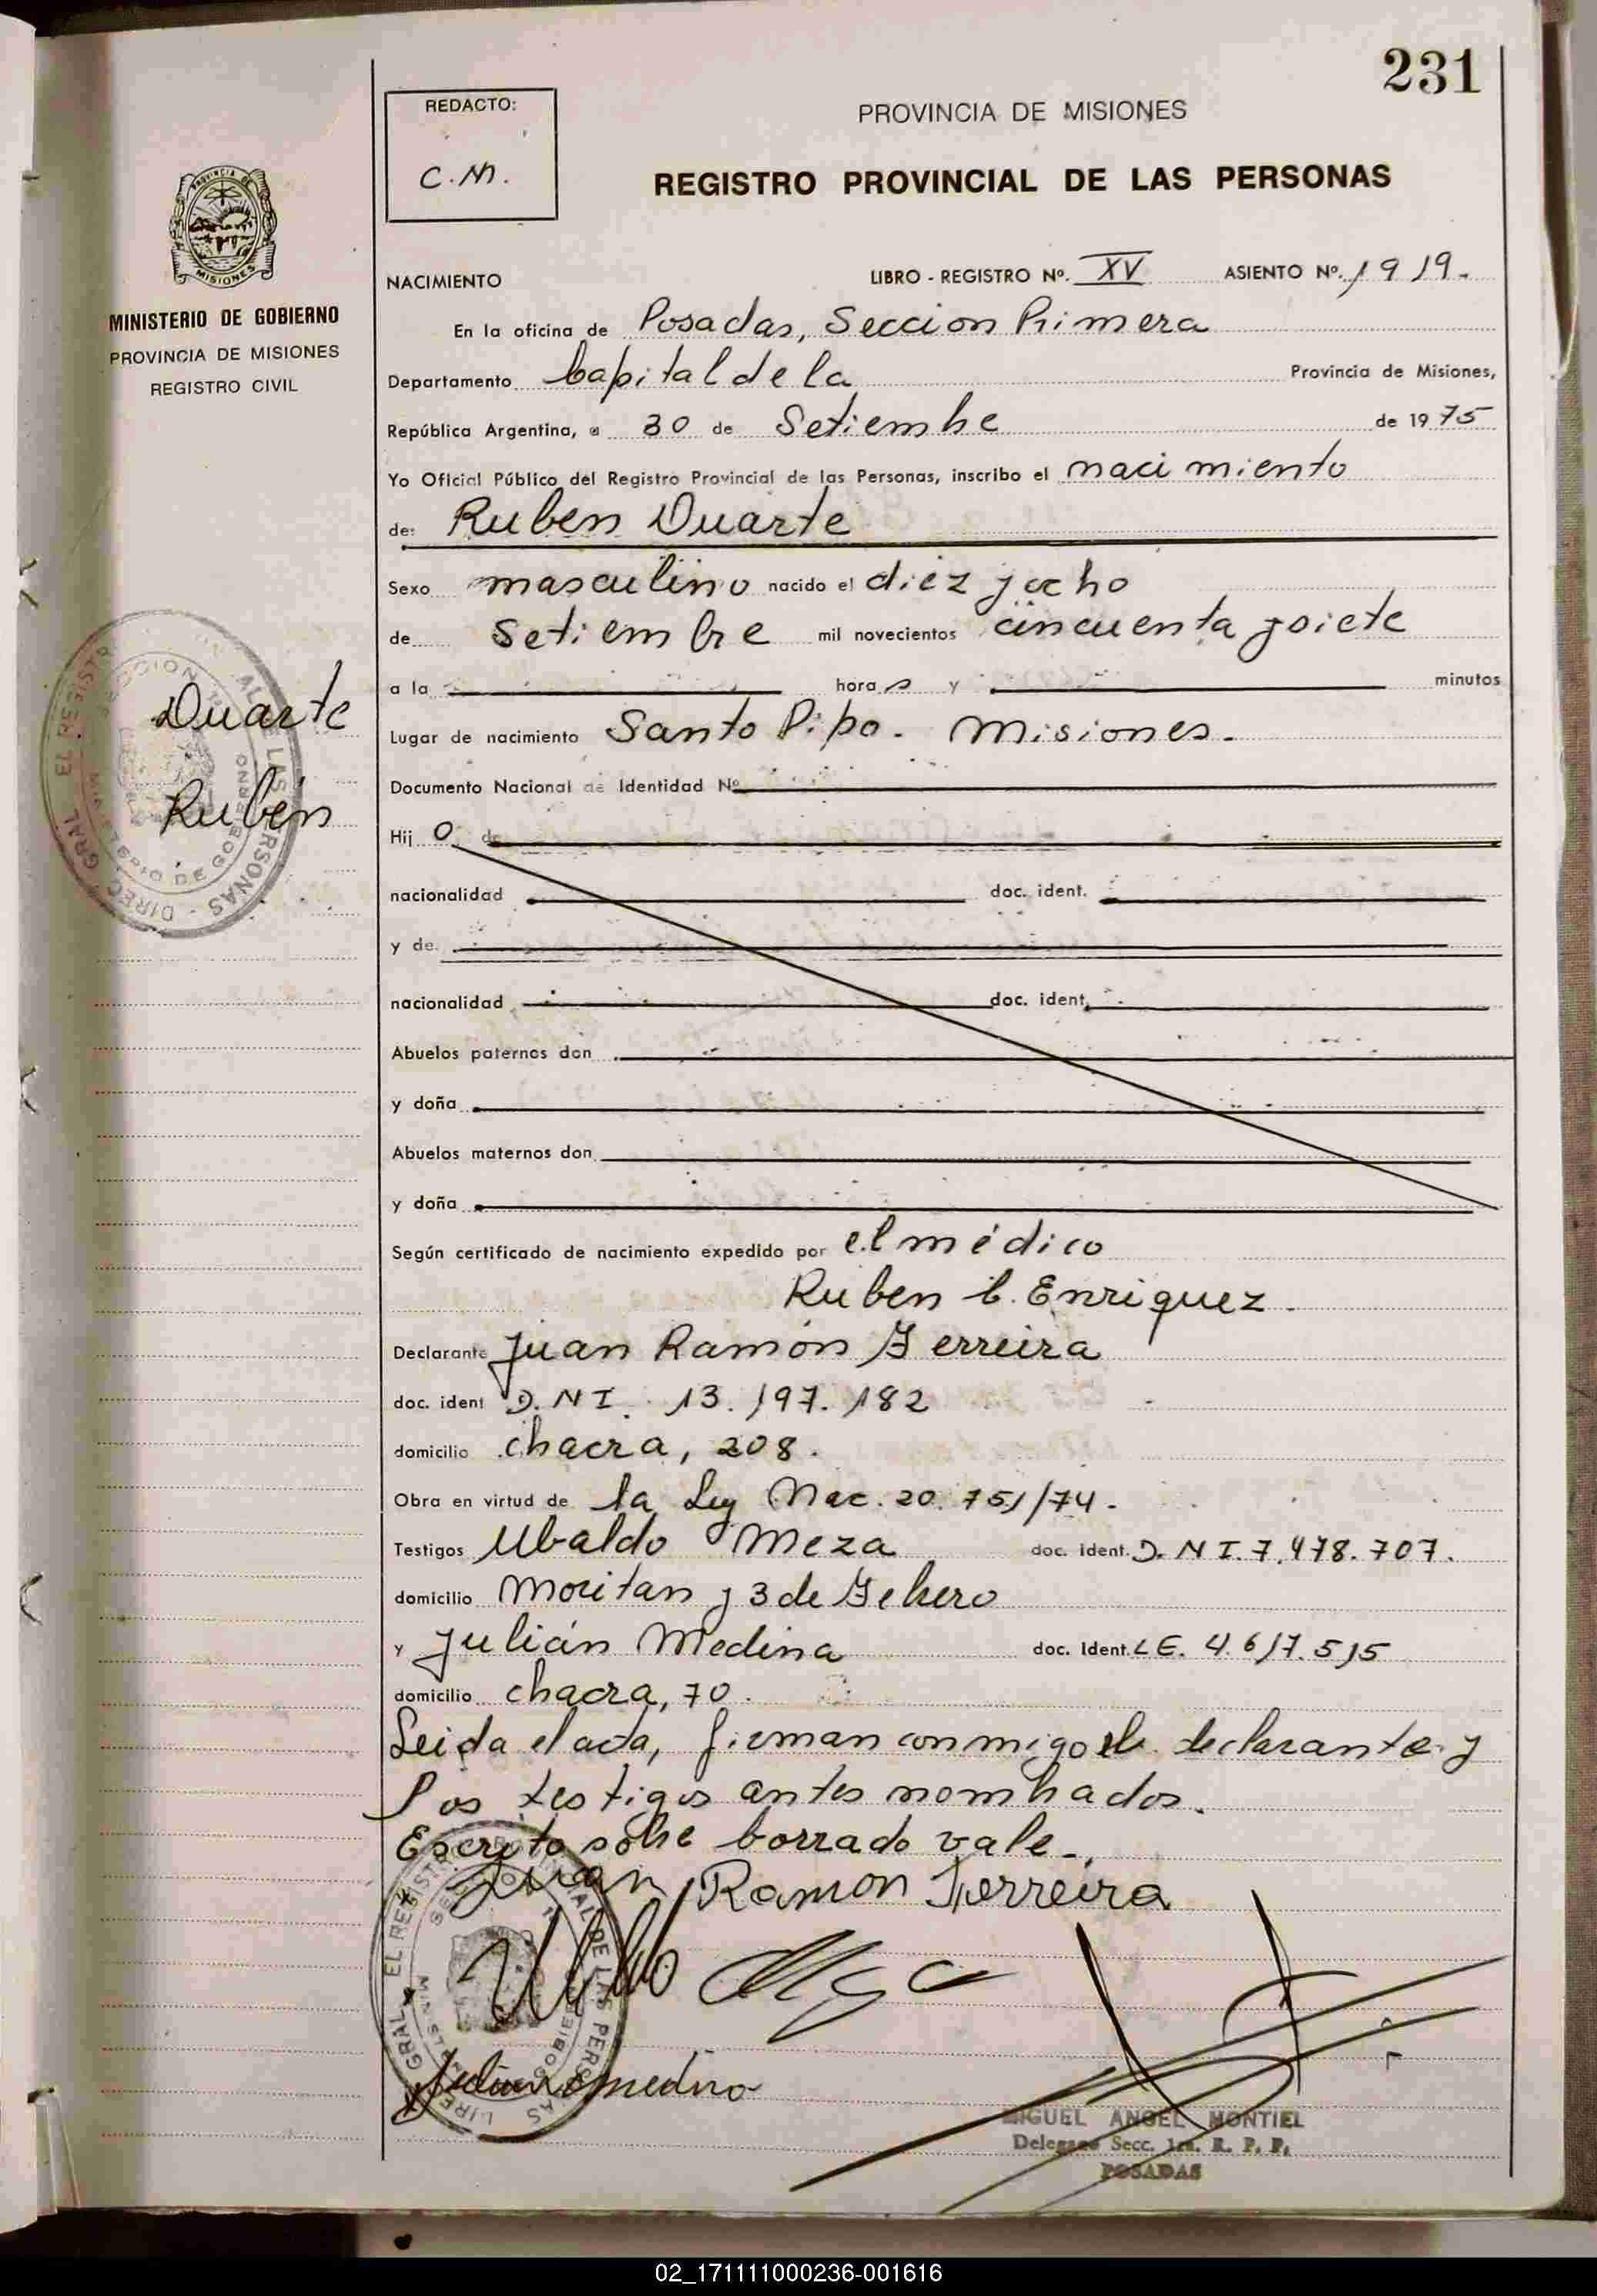 231
REDACTO:
C.M.
PROVINCIA DE MISIONES
REGISTRO PROVINCIAL DE LAS PERSONAS
MISIONES
MINISTERIO DE GOBIERNO
PROVINCIA DE MISIONES
REGISTRO CIVIL
NACIMIENTO LIBRO - REGISTRO Nº. XV ASIENTO Nº. 1919.
En la oficina de Posadas, Seccion Primera
Departamento Capital de la Provincia de Misiones,
República Argentina, a 30 de Setiembre de 1975
Yo Oficial Público del Registro Provincial de las Personas, inscribo el nacimiento
de: Ruben Duarte
Sexo masculino nacido el diez y ocho
de Setiembre mil novecientos cincuenta y siete
a la hora s y minutos
Duarte
Rubén
Lugar de nacimiento Santo Pipo. Misiones.
Documento Nacional de Identidad Nº
Hij o de
nacionalidad doc. ident.
y de
nacionalidad doc. ident.
Abuelos paternos don
y doña
Abuelos maternos don
y doña
Según certificado de nacimiento expedido por el médico
Ruben C. Enriquez.
Declarante Juan Ramón Ferreira
doc. ident D.N.I. 13.197.182
domicilio chacra, 208.
Obra en virtud de la Ley Nac. 20.751/74.
Testigos Ubaldo Meza doc. ident. D.N.I. 7.478.707.
domicilio Moritan y 3 de Febrero
y Julián Medina doc. Ident. L.E. 4.617.515
domicilio chacra, 70.
Leida el acta, firman conmigo el declarante y
los testigos antes nombrados.
Escrito sobre borrado vale.
Juan Ramon Ferreira
MIGUEL ANGEL MONTIEL
Delegado Secc. 1ra. R. P. P.
POSADAS
02_171111000236-001616